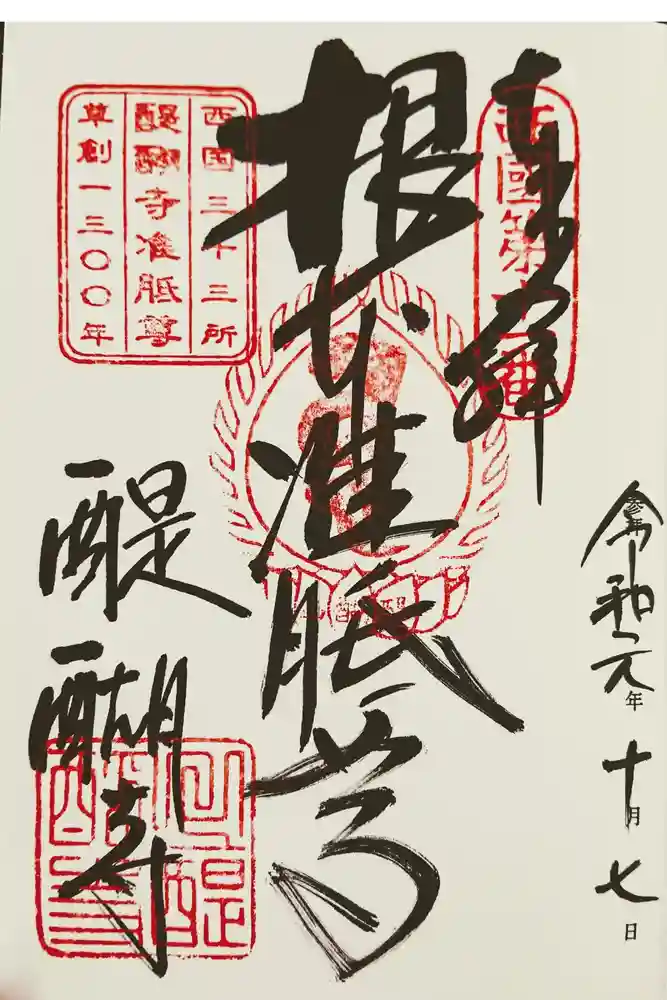 奉拝
西國第十一番
令和元年十月七日
根本准胝尊
西国三十三所
醍醐寺准胝尊
草創一三〇〇年
醍醐寺